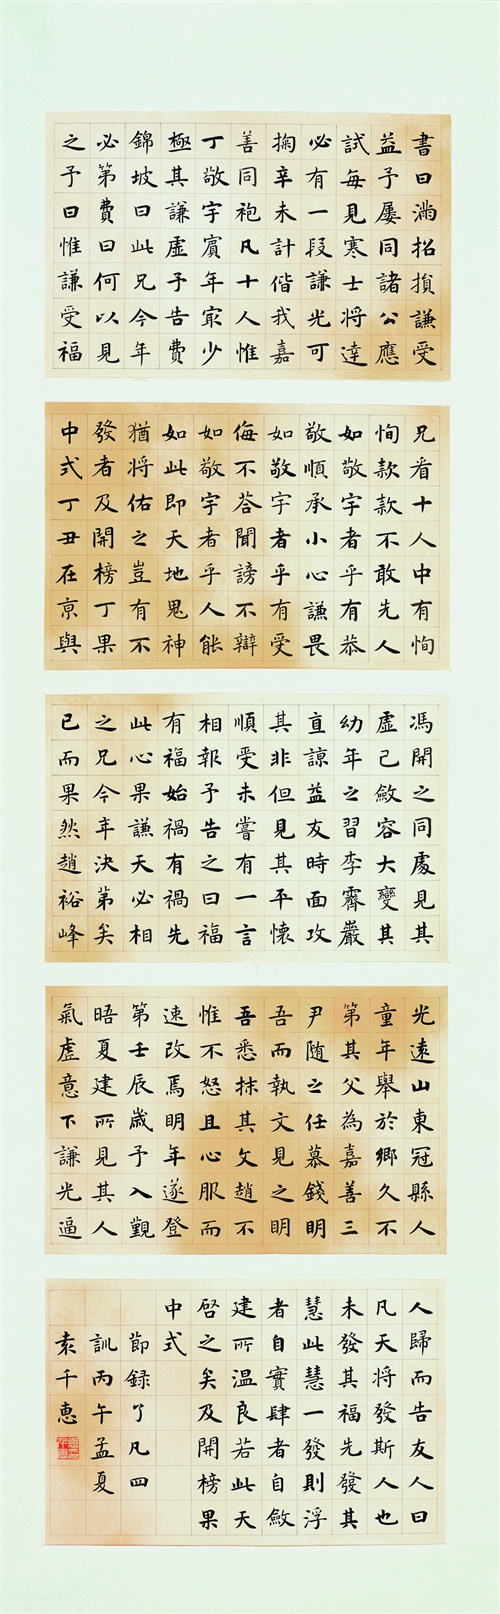 書曰滿招損謙受
益予屢同諸公應
試每見寒士將達
必有一段謙光可
掬辛未計偕我嘉
善同袍凡十人惟
丁敬宇賓年冣少
極其謙虛予告費
錦坡曰此兄今年
必第費曰何以見
之予曰惟謙受福
兄看十人中有恂
恂款款不敢先人
如敬宇者乎有恭
敬順承小心謙畏
如敬宇者乎有受
侮不答聞謗不辯
如敬宇者乎人能
如此即天地鬼神
猶將佑之豈有不
發者及開榜丁果
中式丁丑在亰與
馮開之同處見其
虛己斂容大變其
幼年之習李霽巖
直諒益友時面攻
其非但見其平懷
順受未嘗有一言
相報予告之曰福
有福始禍有禍先
此心果謙天必相
之兄今年決第矣
已而果然趙裕峰
光遠山東冠縣人
童年舉於鄉久不
第其父為嘉善三
尹隨之任慕錢明
吾而執文見之明
吾悉抹其文趙不
惟不怒且心服而
速改焉明年遂登
第壬辰歲予入覲
晤夏建所見其人
氣虛意下謙光逼
人歸而告友人曰
凡天將發斯人也
未發其福先發其
慧此慧一發則浮
者自實肆者自斂
建所溫良若此天
啓之矣及開榜果
中式
節録了凡四
訓丙午孟夏
袁千惠